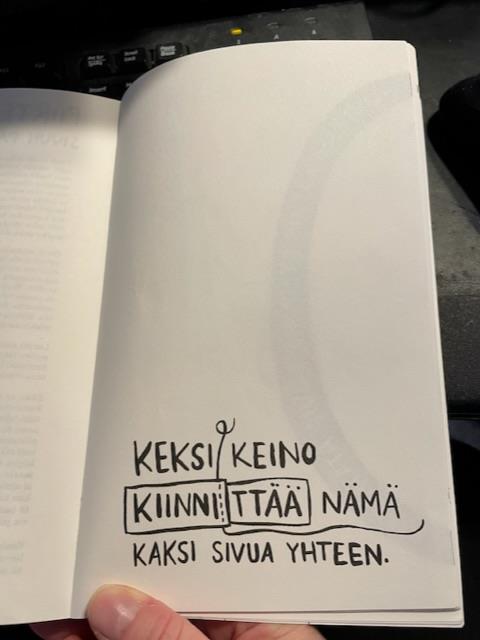 KEKSI KEINO
KIINNITTÄÄ NÄMÄ
KAKSI SIVUA YHTEEN.